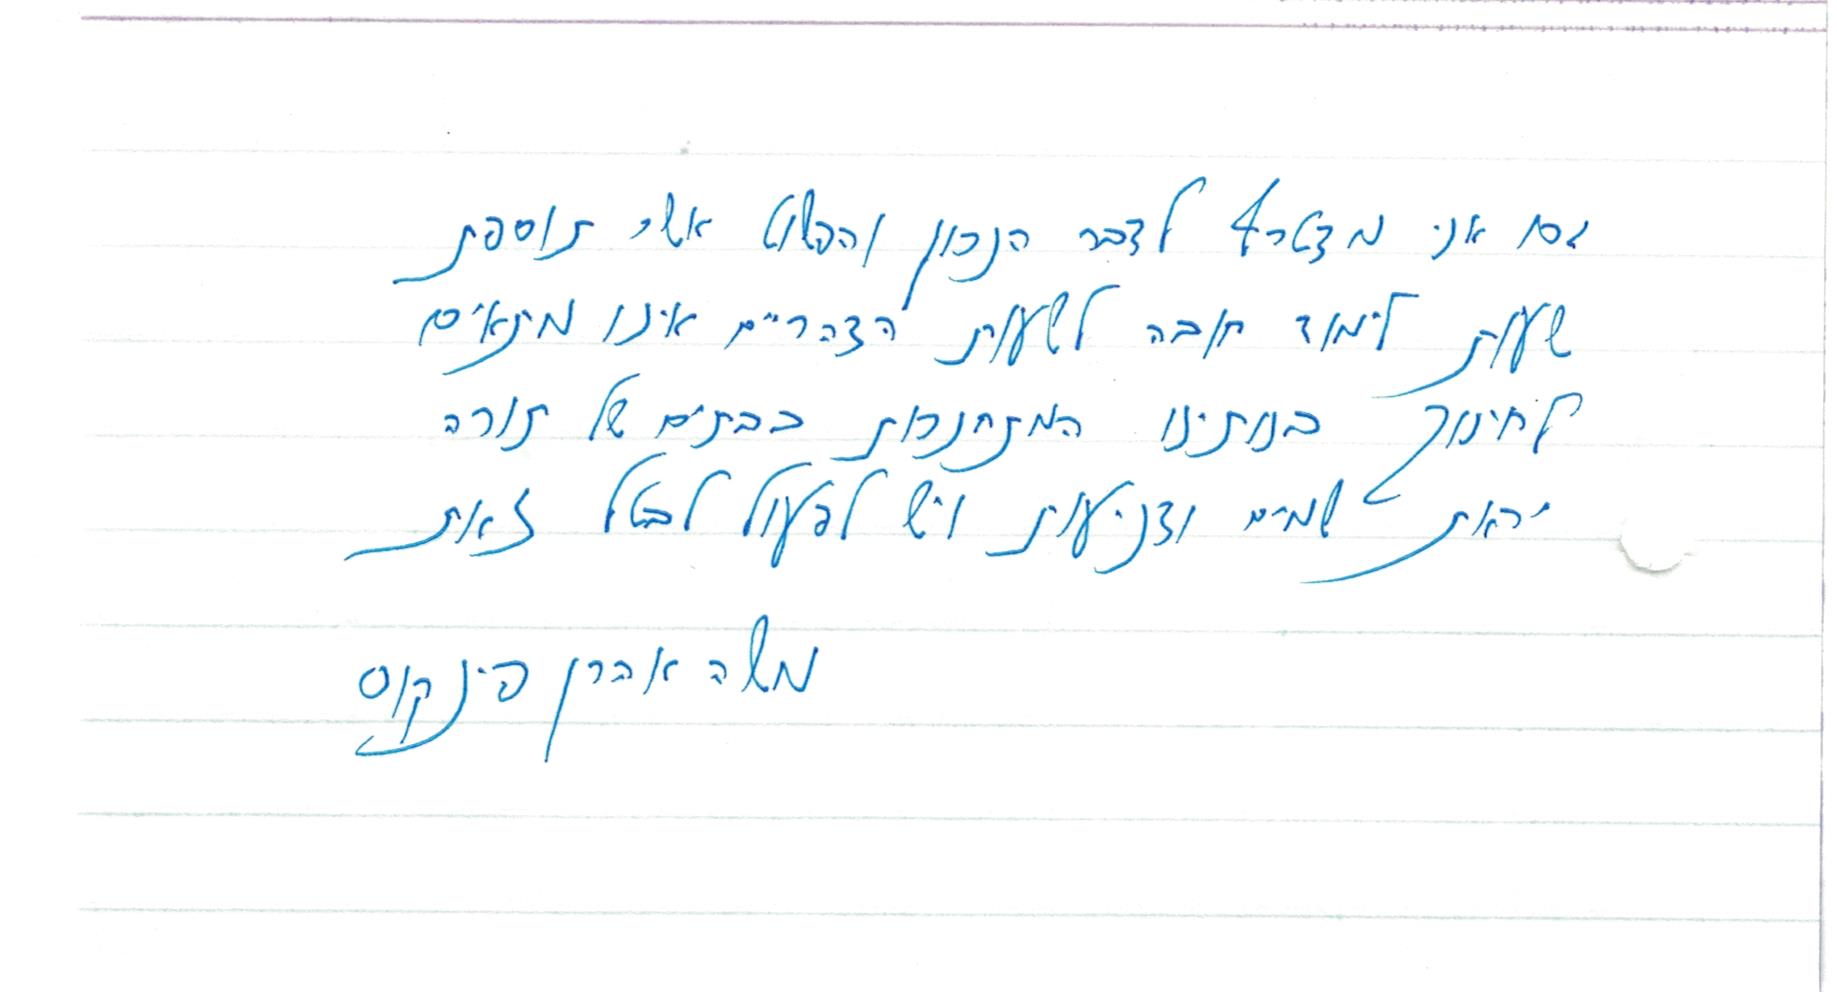 גם אני מצטרף לדבר הנכון והפשוט אשר תוספת
שעות לימוד חובה לשעות הצהריים אינו מתאים
לחינוך בנותינו המתחנכות בבתים של תורה
יראת שמים וצניעות ויש לפעול לבטל זאת
משה אהרן פינקוס